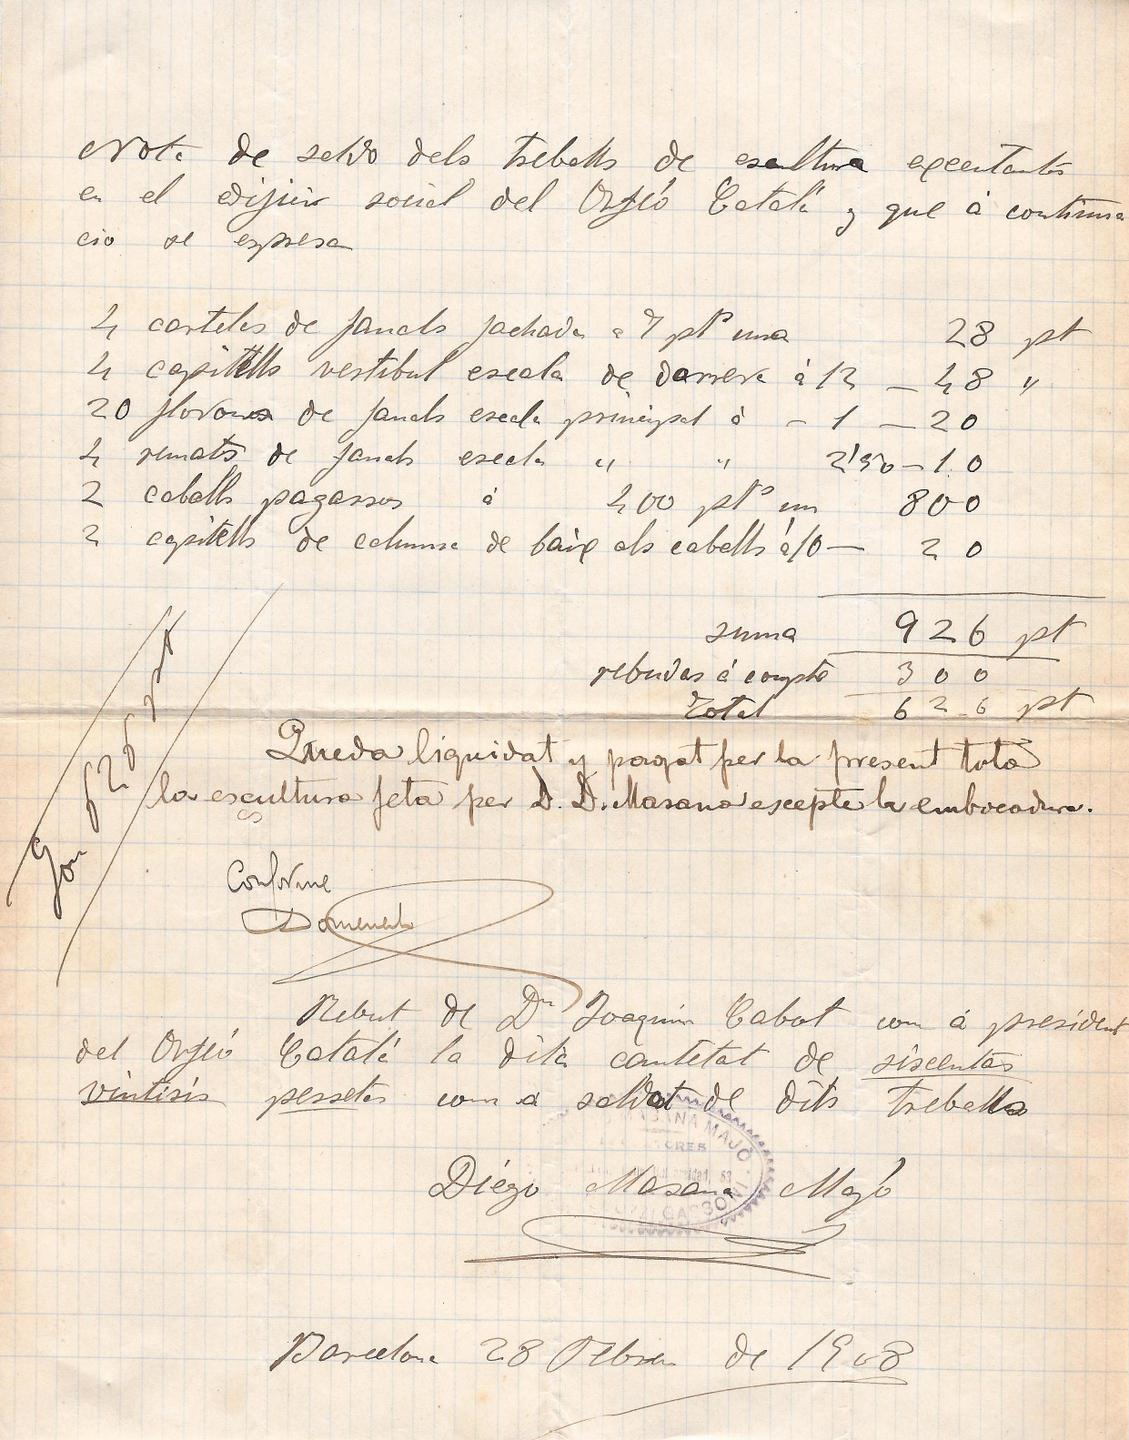 Nota de saldo dels treballs de escultura executants
en el edifici social del Orfeó Catalá y que á continua
cio se expresa
4 carteles de fanals fachada a 7 pts una 28 pt
4 capitells vestibul escala de darrera á 12 — 48 "
20 florons de fanals escala principal á — 1 — 20
4 remats de fanals escala " " 2'50 — 10
2 caballs pagassos á 400 pts un 800
2 capitells de columna de baix als caballs á 10 — 20
suma 926 pt
rebudas á compte 300
Total 626 pt
Queda liquidat y pagat per la present tota
la escultura feta per D. D. Masana escepte la embocadura.
Son 626 pt
Conforme
Domenech
Rebut de Dn Joaquim Cabot com á president
del Orfeó Catalá la dita cantitat de siscentas
vintisis pessetas com a saldat de dits treballs
MASANA MAJÓ
Diégo Masana Majó
Barcelona 28 Febrer de 1908